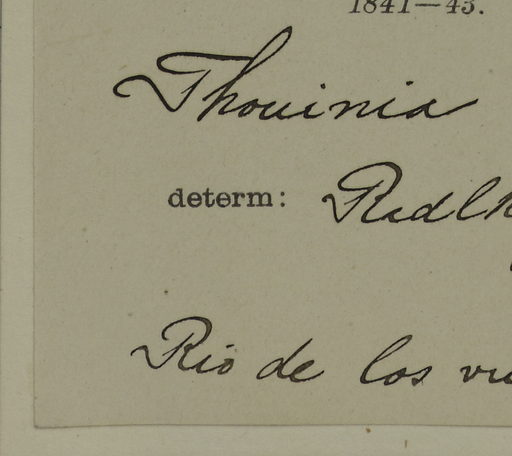 1841—43.
Thouinia
determ: Radlk
Rio de los